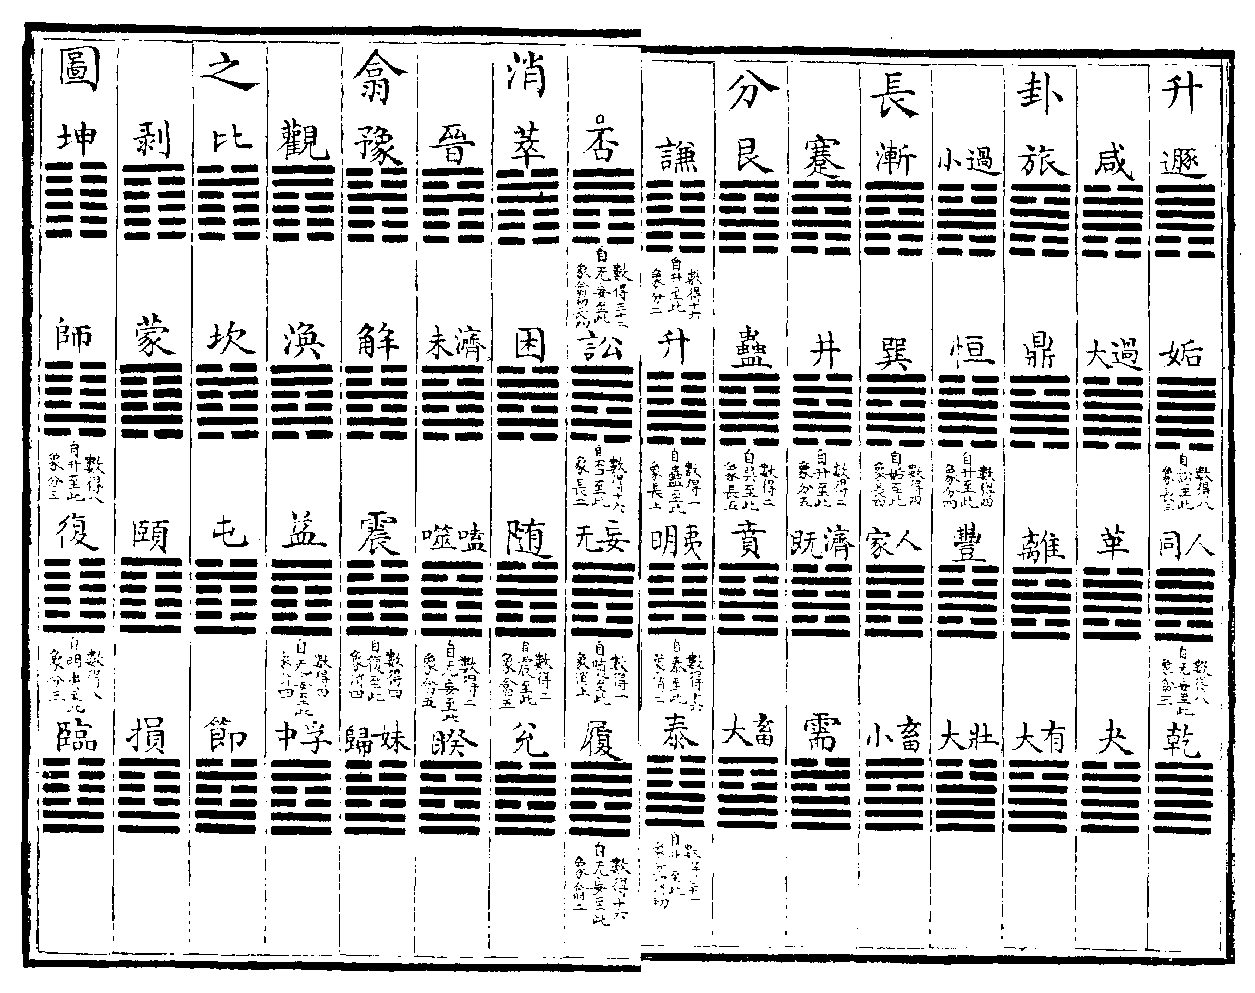 升卦長分消翕之圖
遯
咸
旅
小過
漸
蹇
艮
謙
數得十六
自升至此
象分二
否
數得三十二
自无妄至此
象翕初
萃
晉
豫
觀
比
剥
坤
姤
數得八
自訟至此
象長三
大過
鼎
恒
數得四
自升至此
象分四
巽
數得四
自姤至此
象長四
井
數得二
自升至此
象分五
蠱
數得二
自巽至此
象長五
升
數得一
自蠱至此
象長上
訟
數得十六
自否至此
象長二
困
未濟
解
渙
坎
蒙
師
數得八
自升至此
象分三
同人
數得八
自无妄至此
象翕三
革
離
豐
家人
既濟
賁
明夷
數得十六
自泰至此
象消二
无妄
數得一
自随至此
象消上
随
數得二
自震至此
噬嗑
數得二
自无妄至此
象翕五
震
數得四
自復至此
象消四
益
數得四
自无妄至此
屯
頤
復
數得八
自明夷至此
乾
夬
大有
大壯
小畜
需
大畜
泰
自升至此
履
數得十六
自无妄至此
象翕二
兌
睽
歸妹
中孚
節
損
臨